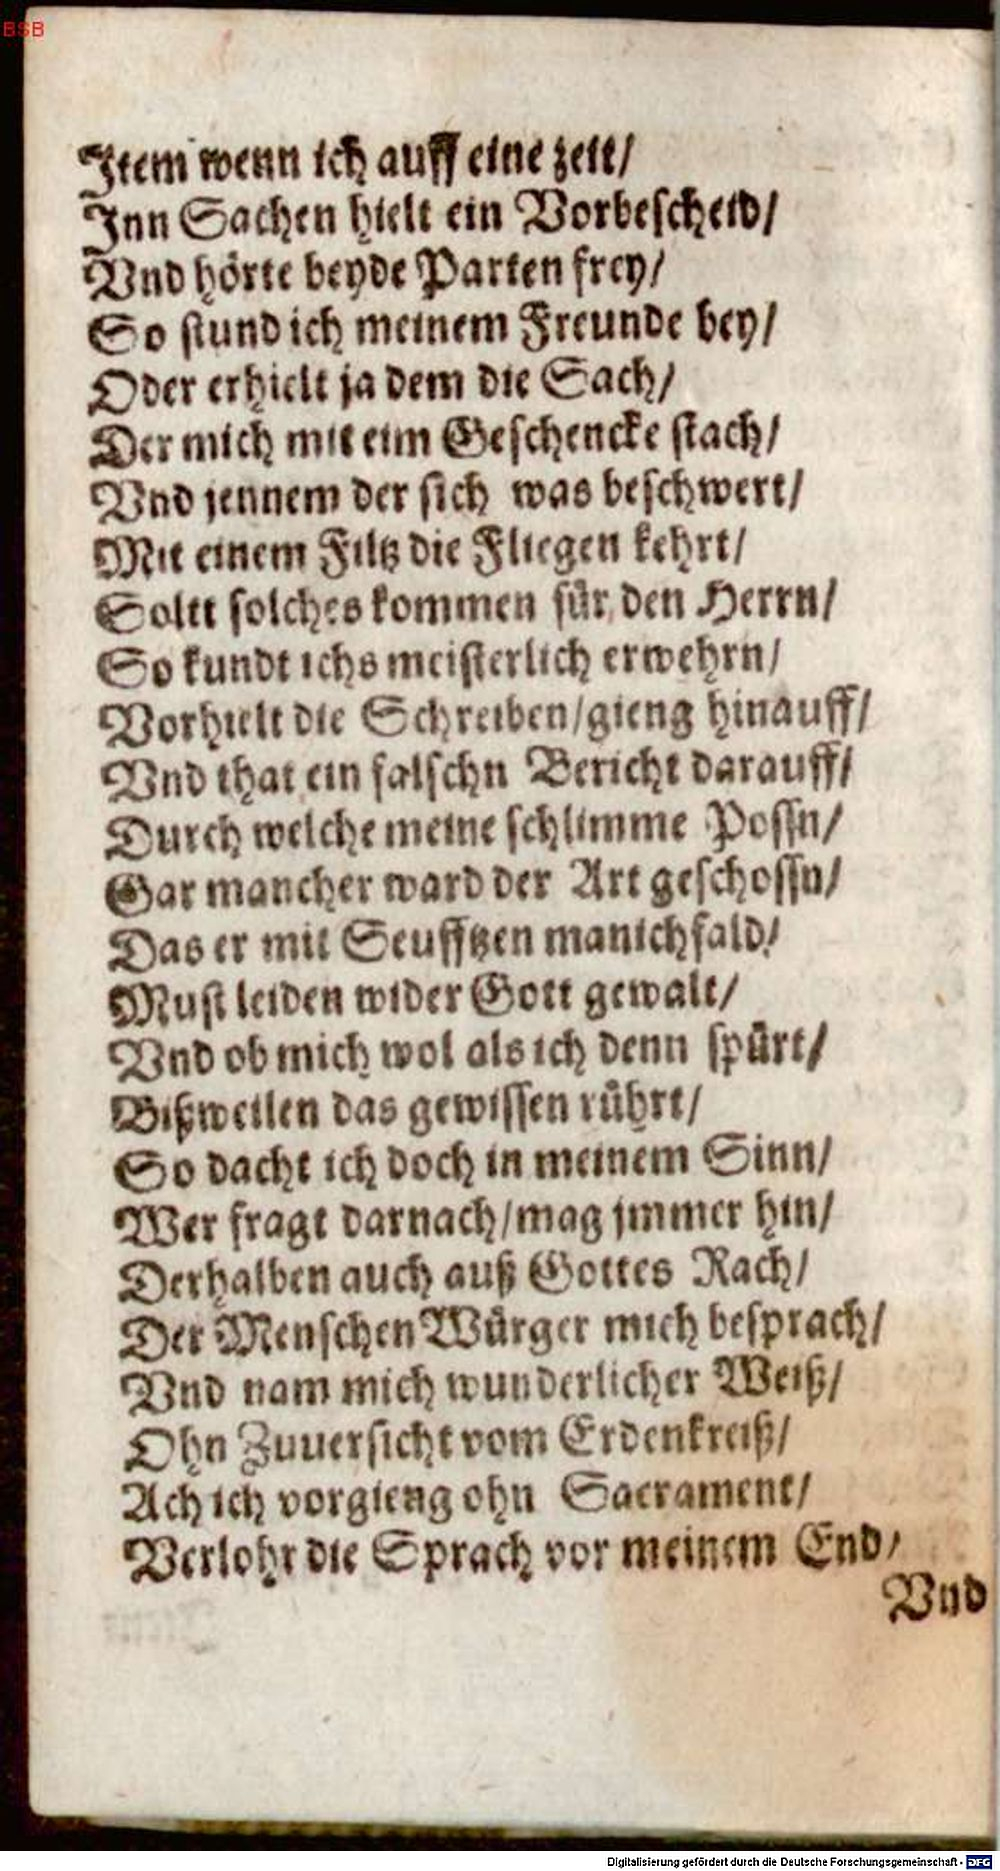 BSB
Item wenn ich auff eine zeit/
Inn Sachen hielt ein Vorbescheid/
Vnd hörte beyde Parten frey/
So stund ich meinem Freunde bey/
Oder erhielt ja dem die Sach/
Der mich mit eim Geschencke stach/
Vnd jennem der sich was beschwert/
Mit einem Filtz die Fliegen kehrt/
Soltt solches kommen für den Herrn/
So kundt ichs meisterlich erwehrn/
Vorhielt die Schreiben/gieng hinauff/
Vnd that ein falschn Bericht darauff/
Durch welche meine schlimme Possn/
Gar mancher ward der Art geschossn/
Das er mit Seufftzen manichfald/
Must leiden wider Gott gewalt/
Vnd ob mich wol als ich denn spürt/
Bißweilen das gewissen rührt/
So dacht ich doch in meinem Sinn/
Wer fragt darnach/mag jmmer hin/
Derhalben auch auß Gottes Rach/
Der Menschen Würger mich besprach/
Vnd nam mich wunderlicher Weiß/
Ohn Zuuersicht vom Erdenkreiß/
Ach ich vorgieng ohn Sacrament/
Verlohr die Sprach vor meinem End/
Vnd
Digitalisierung gefördert durch die Deutsche Forschungsgemeinschaft - DFG